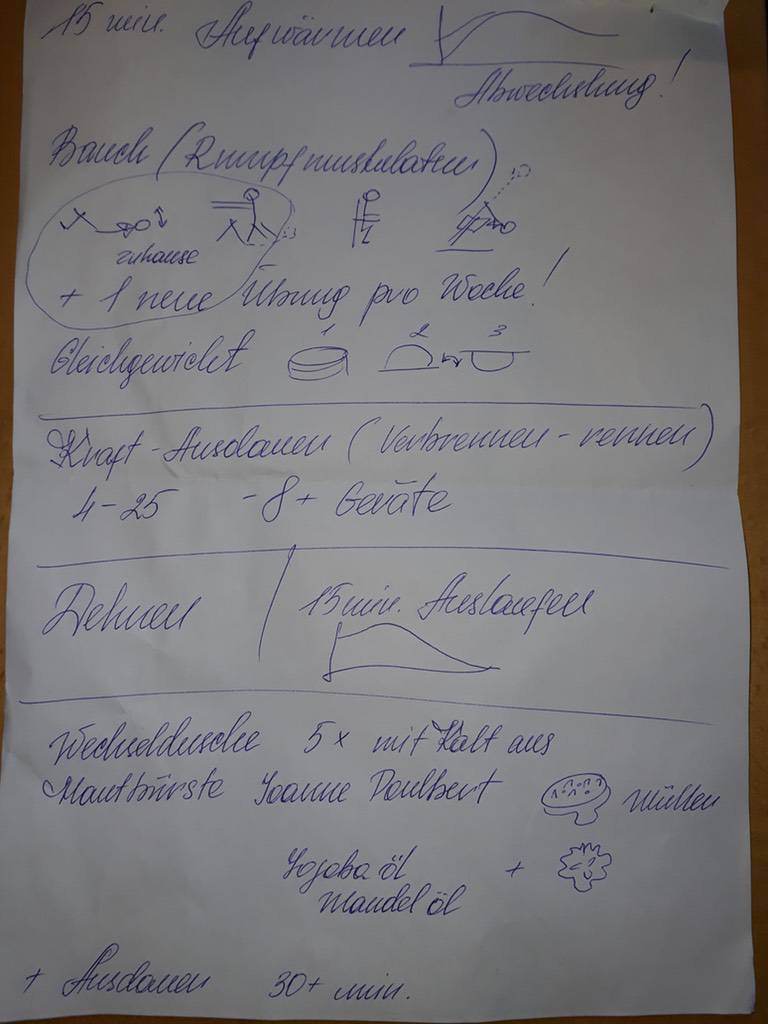 15 min. Aufwärmen
Abwechslung!
Bauch (Rumpfmuskulatur)
zuhause
+ 1 neue Übung pro Woche!
1 2 3
Gleichgewicht
Kraft-Ausdauer (Verbrennen-rennen)
4-25 - 8+ Geräte
Dehnen 15 min. Auslaufen
Wechseldusche 5x mit Kalt aus
Hautbürste Joanne
Jojoba öl +
Mandel öl
+ Ausdauer 30+ min.